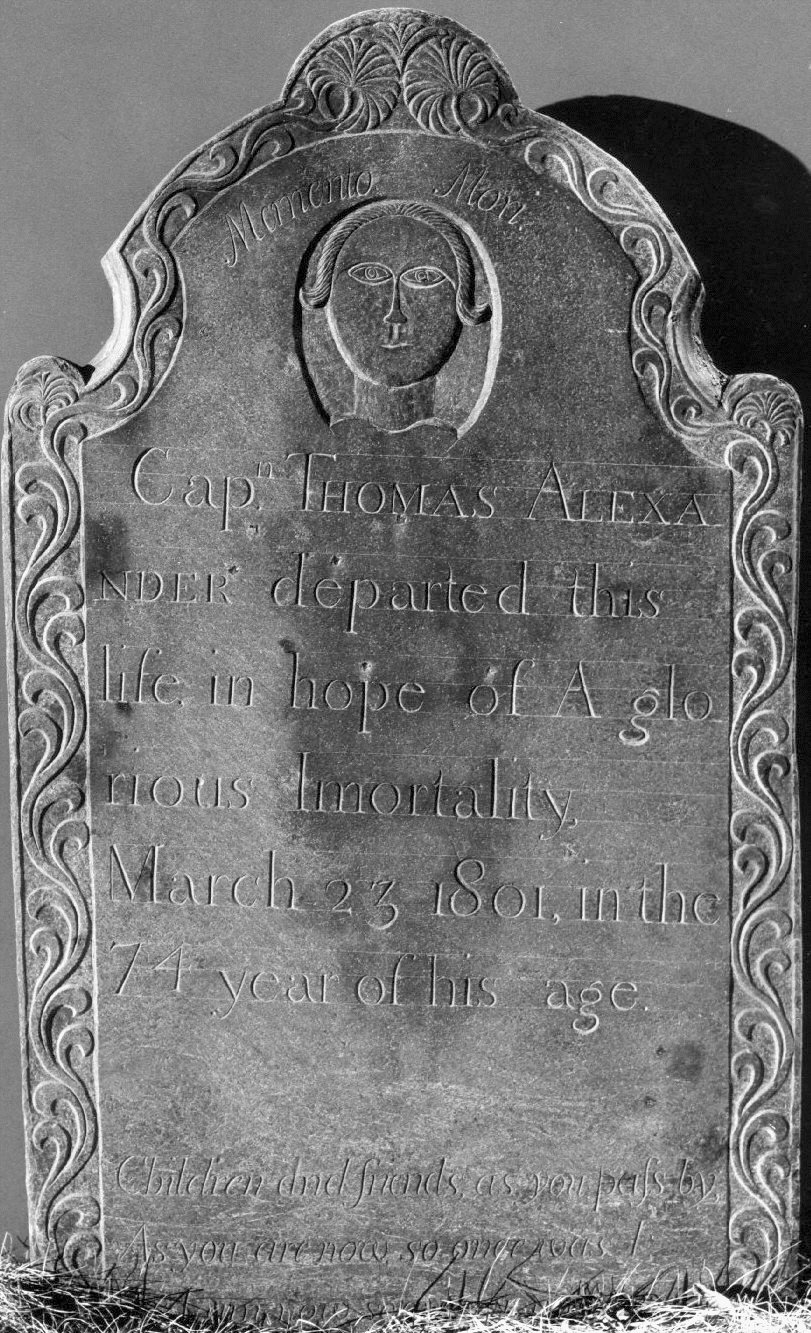 Memento Mori.
Capⁿ. THOMAS ALEXA
NDER departed this
life, in hope of A glo
rious Imortality,
March 23 1801, in the
74 year of his age.
Children and friends, as you paſs by,
As you are now, so once was I;